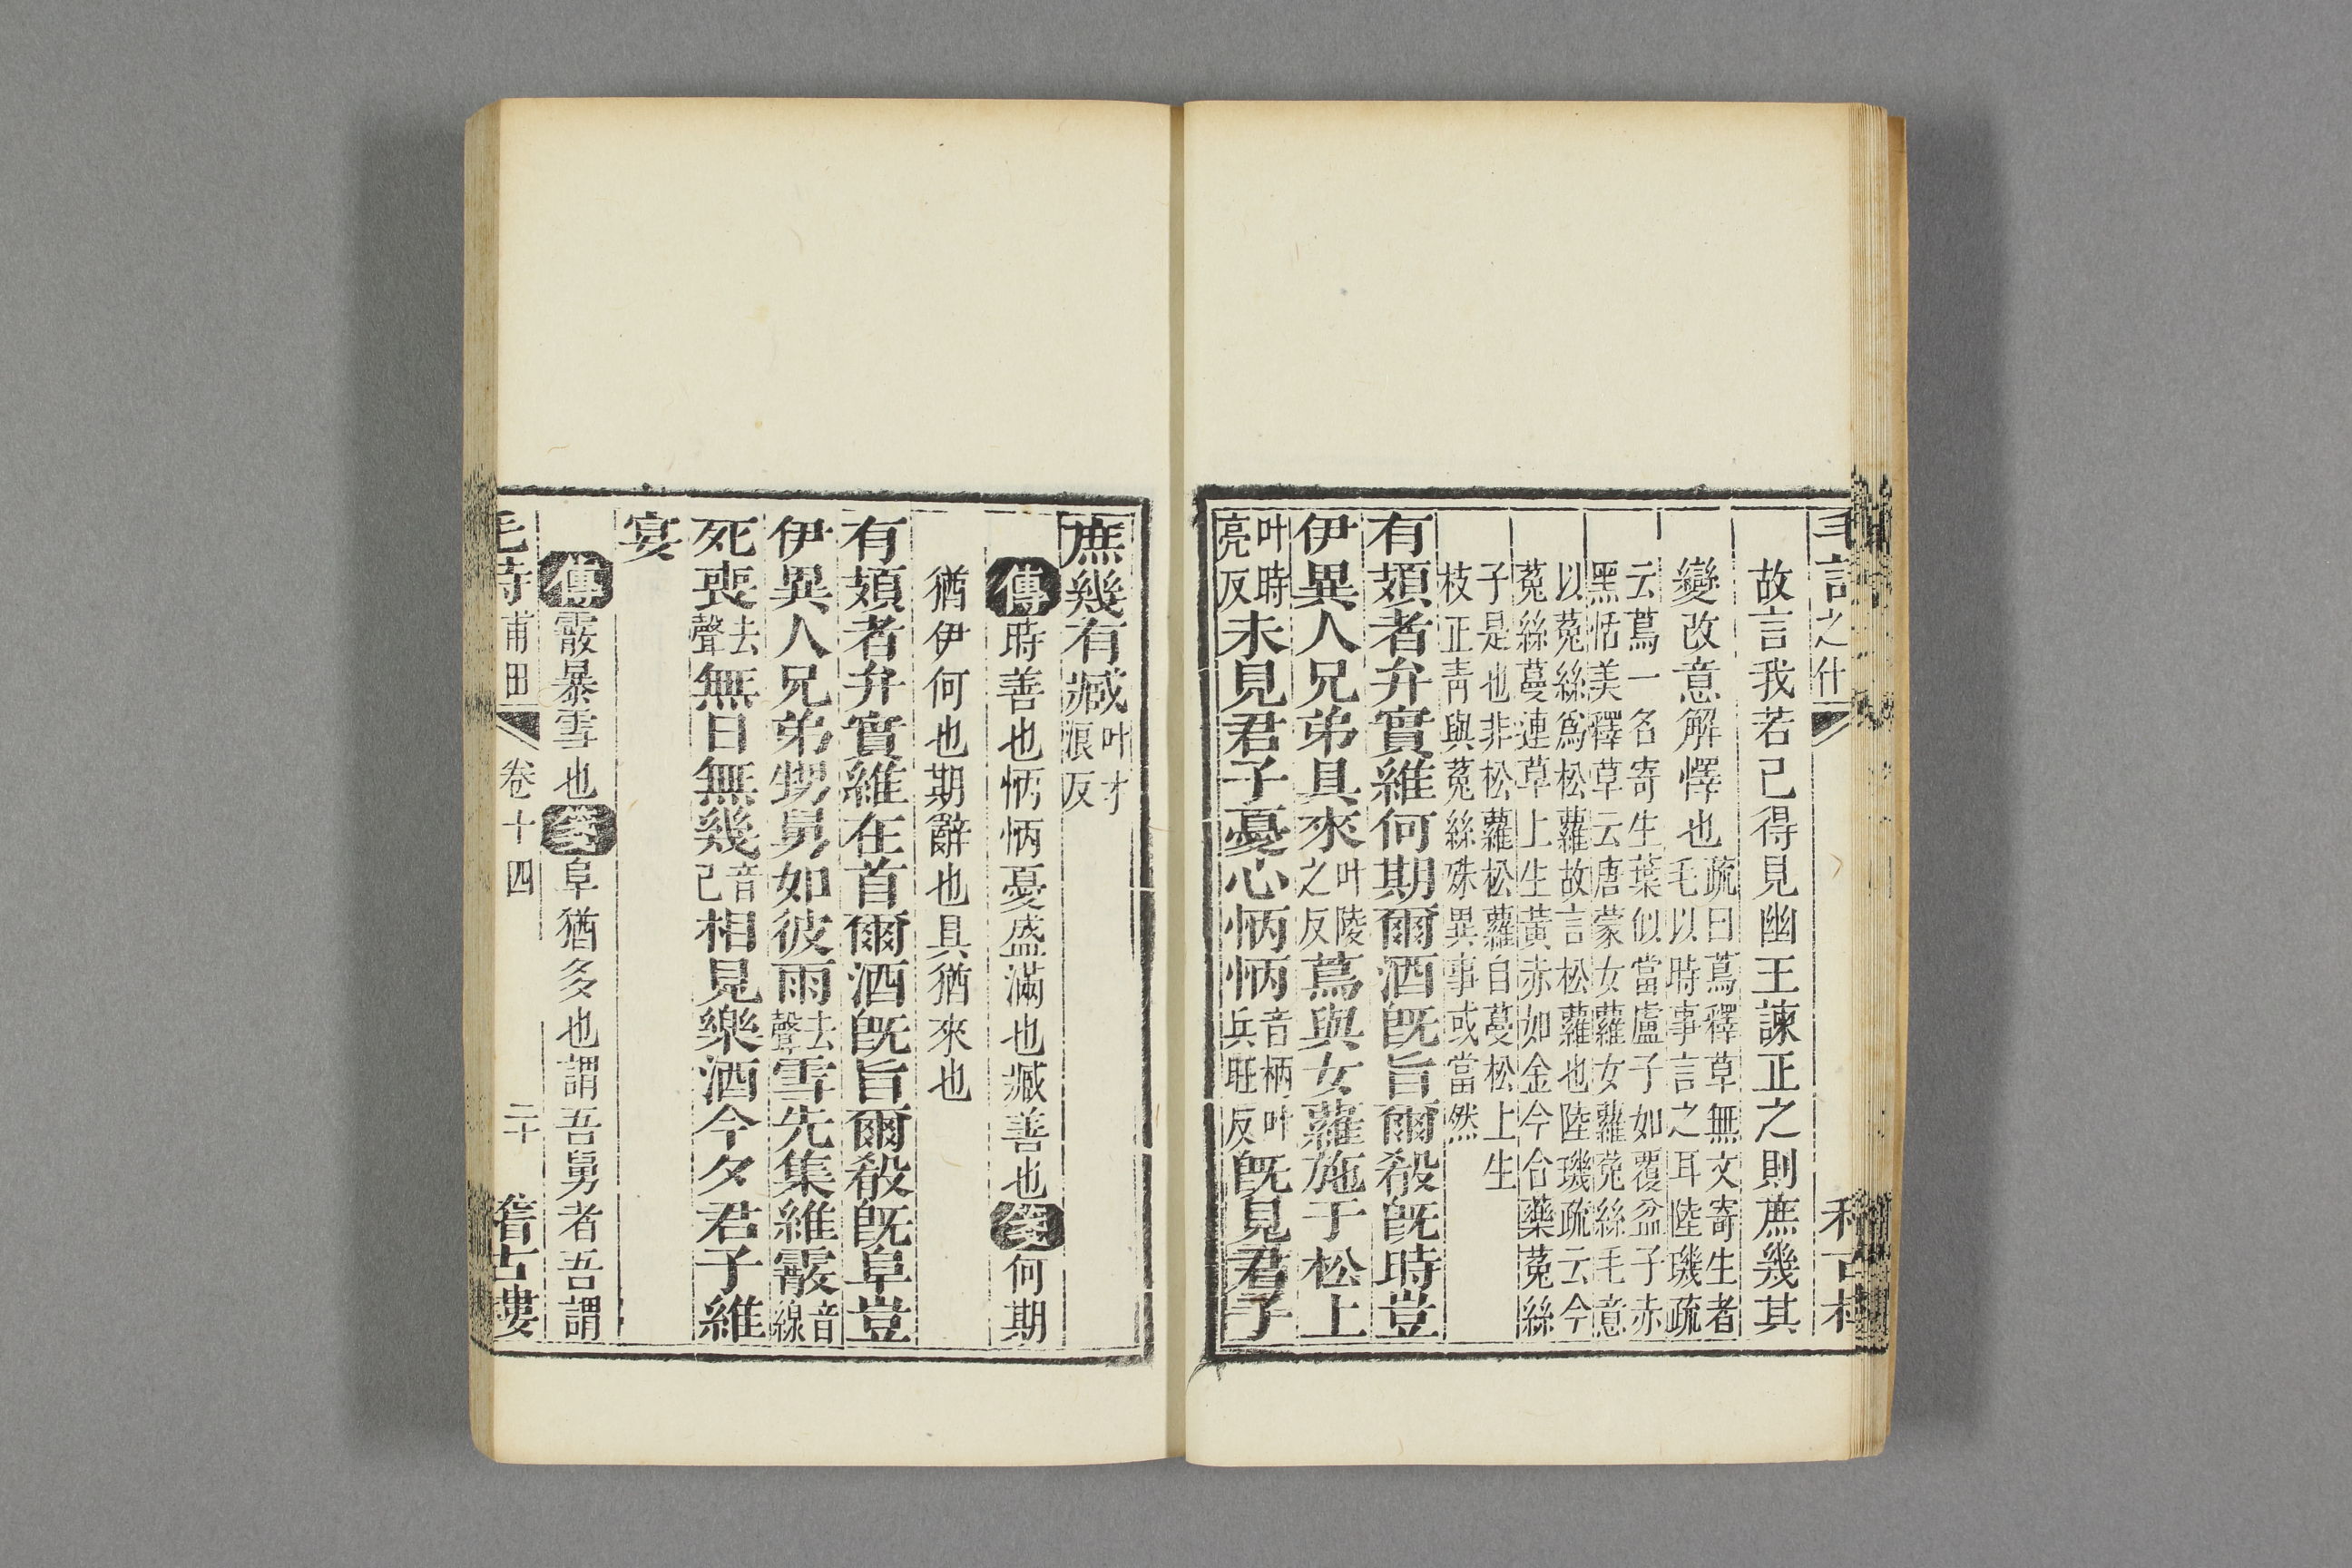 故言我若已得見幽王諫正之則庶幾其
變改意解懌也疏曰蔦釋草無文寄生者
毛以時事言之耳陸璣疏
云蔦一名寄生葉似當盧子如覆盆子赤
黑恬美釋草云唐蒙女蘿女蘿菟絲毛意
以菟絲爲松蘿故言松蘿也陸璣疏云今
菟絲蔓連草上生黃赤如金今合藥菟絲
子是也非松蘿松蘿自蔓松上生
枝正靑與菟絲殊異事或當然
有頍者弁實維何期爾酒旣旨爾殽旣時豈
伊異人兄弟具來叶陵之反蔦與女蘿施于松上
叶時亮反未見君子憂心怲怲音柄叶兵旺反旣見君子
庶幾有臧叶才浪反
傳時善也怲怲憂盛滿也臧善也箋何期
猶伊何也期辭也具猶來也
有頍者弁實維在首爾酒旣旨爾殽旣阜豈
伊異人兄弟甥舅如彼雨去聲雪先集維霰音線
死喪去聲無日無幾音己相見樂酒今夕君子維
宴
傳霰暴雪也箋阜猶多也謂吾舅者吾謂
毛詩甫田 卷十四 二十 稽古樓